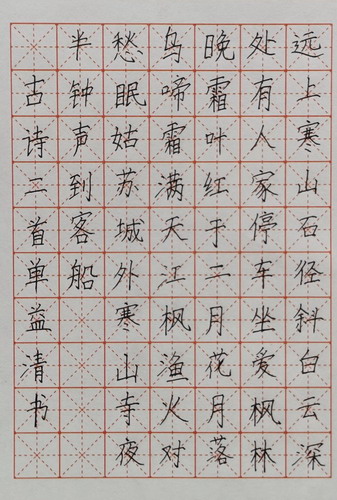 远上寒山石径斜白云深
处有人家停车坐爱枫林
晚霜叶红于二月花月落
乌啼霜满天江枫渔火对
愁眠姑苏城外寒山寺夜
半钟声到客船
古诗二首单益清书